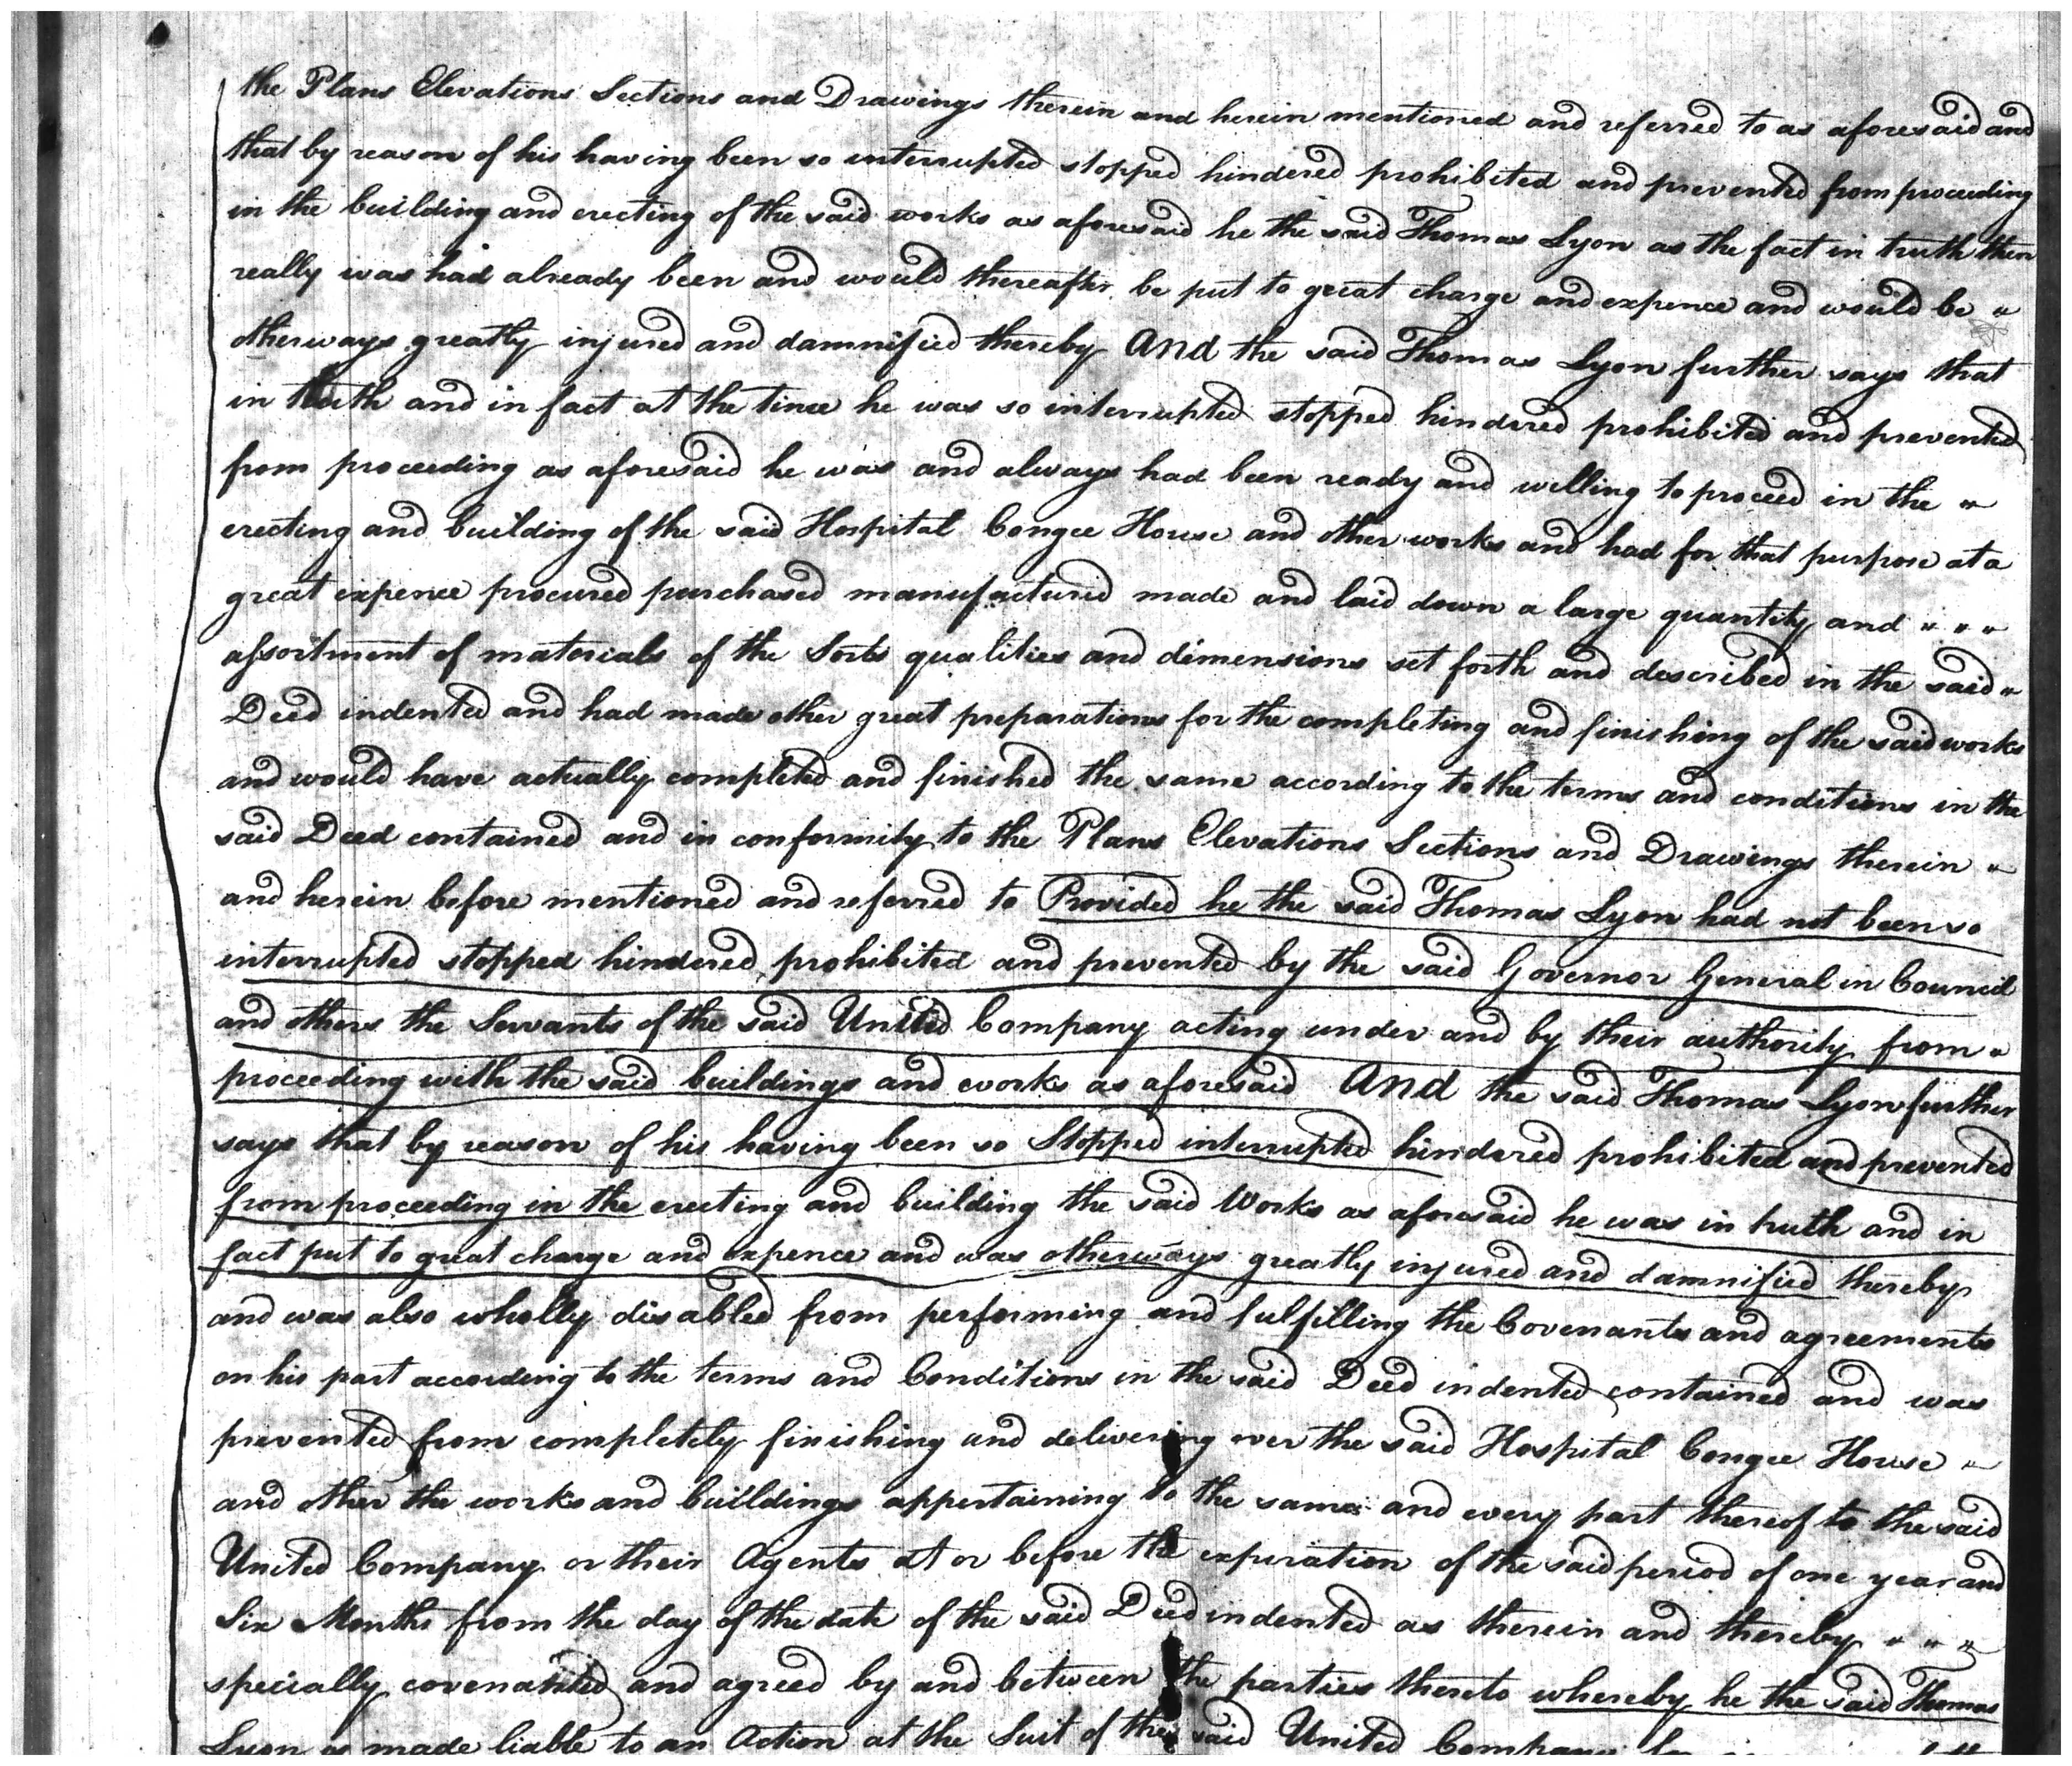 the Plans Elevations Sections and Drawings therein and herein mentioned and referred to as aforesaid and
that by reason of his having been so interrupted stopped hindered prohibited and prevented from proceeding
in the building and erecting of the said works as aforesaid he the said Thomas Lyon as the fact in truth then
really was had already been and would thereafter be put to great charge and expence and would be "
otherways greatly injured and damnified thereby And the said Thomas Lyon further says that
in truth and in fact at the time he was so interrupted stopped hindered prohibited and prevented
from proceeding as aforesaid he was and always had been ready and willing to proceed in the "
erecting and building of the said Hospital Congee House and other works and had for that purpose at a
great expence procured purchased manufactured made and laid down a large quantity and " " "
assortment of materials of the Sorts qualities and dimensions set forth and described in the said "
Deed indented and had made other great preparations for the completing and finishing of the said works
and would have actually completed and finished the same according to the terms and conditions in the
said Deed contained and in conformity to the Plans Elevations Sections and Drawings therein "
and herein before mentioned and referred to Provided he the said Thomas Lyon had not been so
interrupted stopped hindered prohibited and prevented by the said Governor General in Council
and others the Servants of the said United Company acting under and by their authority from "
proceeding with the said buildings and works as aforesaid And the said Thomas Lyon further
says that by reason of his having been so Stopped interrupted hindered prohibited and prevented
from proceeding in the erecting and building the said Works as aforesaid he was in truth and in
fact put to great charge and expence and was otherways greatly injured and damnified thereby
and was also wholly disabled from performing and fulfilling the Covenants and agreements
on his part according to the terms and Conditions in the said Deed indented contained and was
prevented from completely finishing and delivering over the said Hospital Congee House "
and other the works and buildings appertaining to the same and every part thereof to the said
United Company or their Agents at or before the expiration of the said period of one year and
Six Months from the day of the date of the said Deed indented as therein and thereby " " "
specially covenanted and agreed by and between the parties thereto whereby he the said Thomas
Lyon is made liable to an Action at the Suit of the said United Company